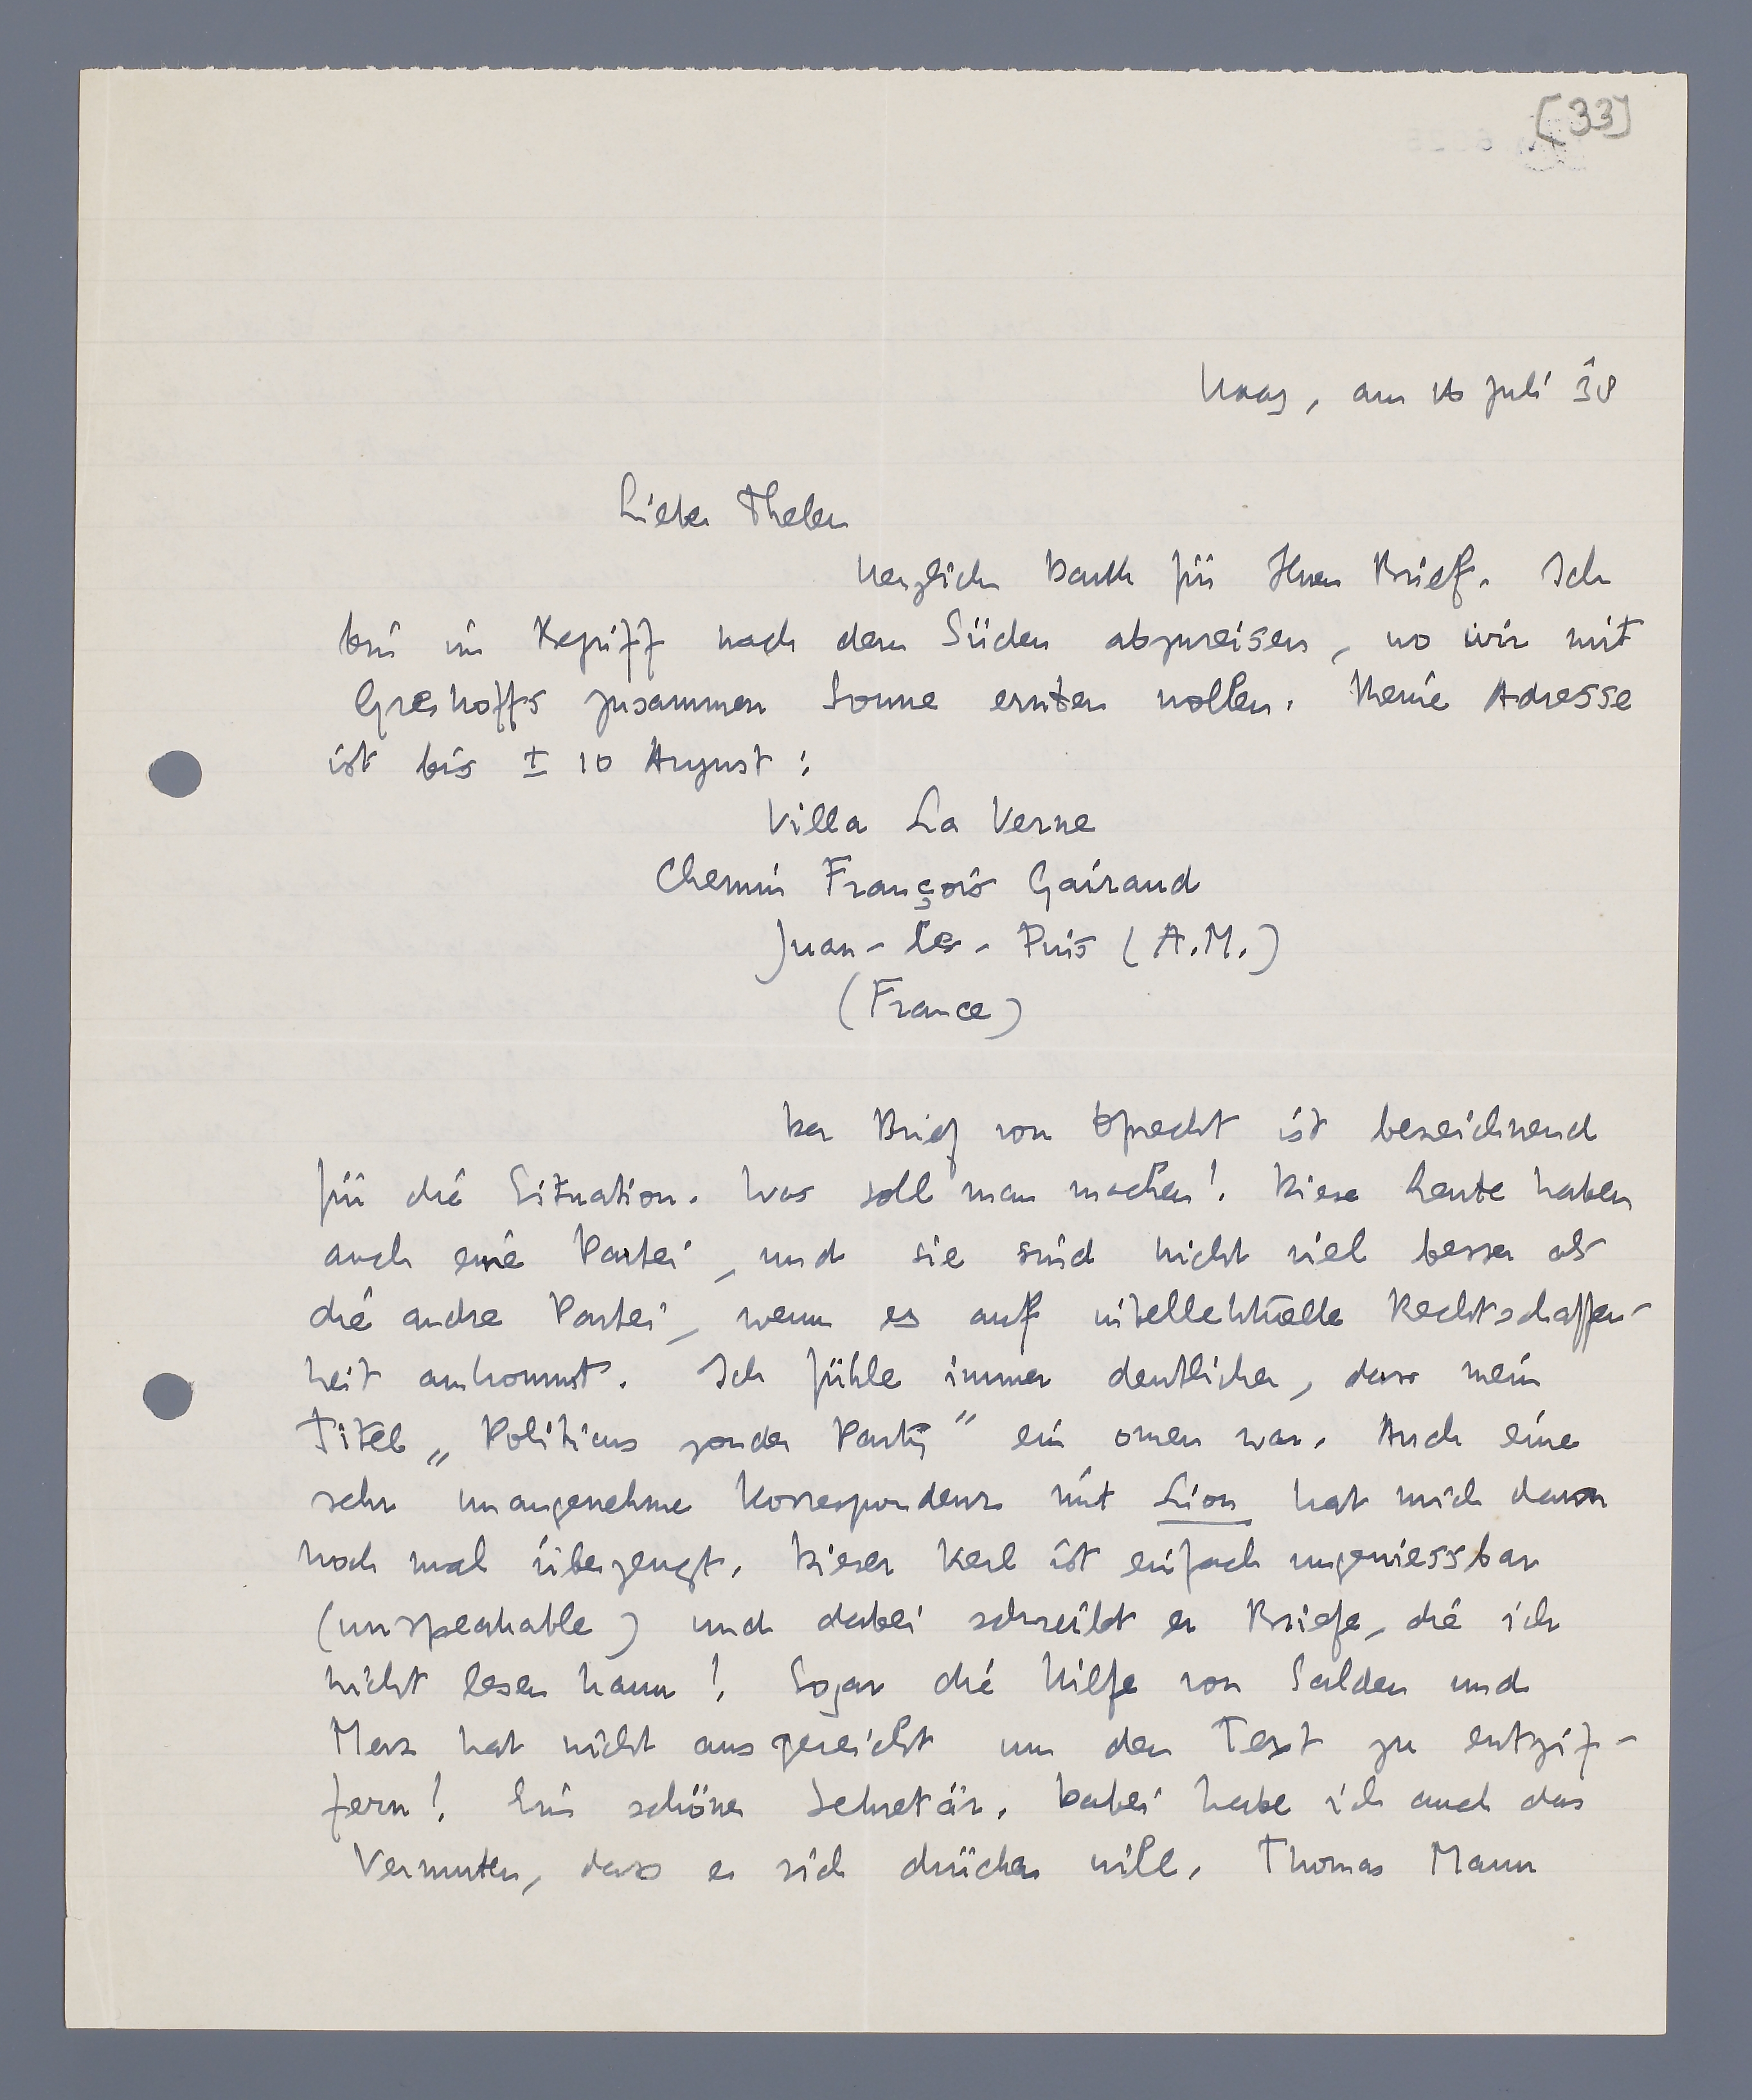 [33]
Haag, am 16 Juli 38
Lieber Thelen
herzlichen Dank für Ihren Brief. Ich
bin im Begriff nach dem Süden abzureisen, wo wir mit
Greshoffs zusammen Sonne ernten wollen. Meine Adresse
ist bis ± 10 August:
Villa La Verne
Chemin François Gairaud
Juan-les-Pins (A.M.)
(France)
Der Brief von Oprecht ist bezeichnend
für die Situation. Was soll man machen! Diese Leute haben
auch eine Partei, und sie sind nicht viel besser als
die andre Partei, wenn es auf intellektuelle Rechtschaffen-
heit ankommt. Ich fühle immer deutlicher, dass mein
Titel „Politicus zonder Partij" ein omen war. Auch eine
sehr unangenehme Korrespondenz mit Lion hat mich davon
noch mal überzeugt. Dieser Kerl ist einfach ungeniessbar
(unspeakable) und dabei schreibt er Briefe, die ich
nicht lesen kann! Sogar die Hilfe von Salden und
Merz hat nicht ausgereicht um den Text zu entzif-
fern! Ein schöner Sekretär. Dabei habe ich auch das
Vermuten, dass er sich drücken will. Thomas Mann